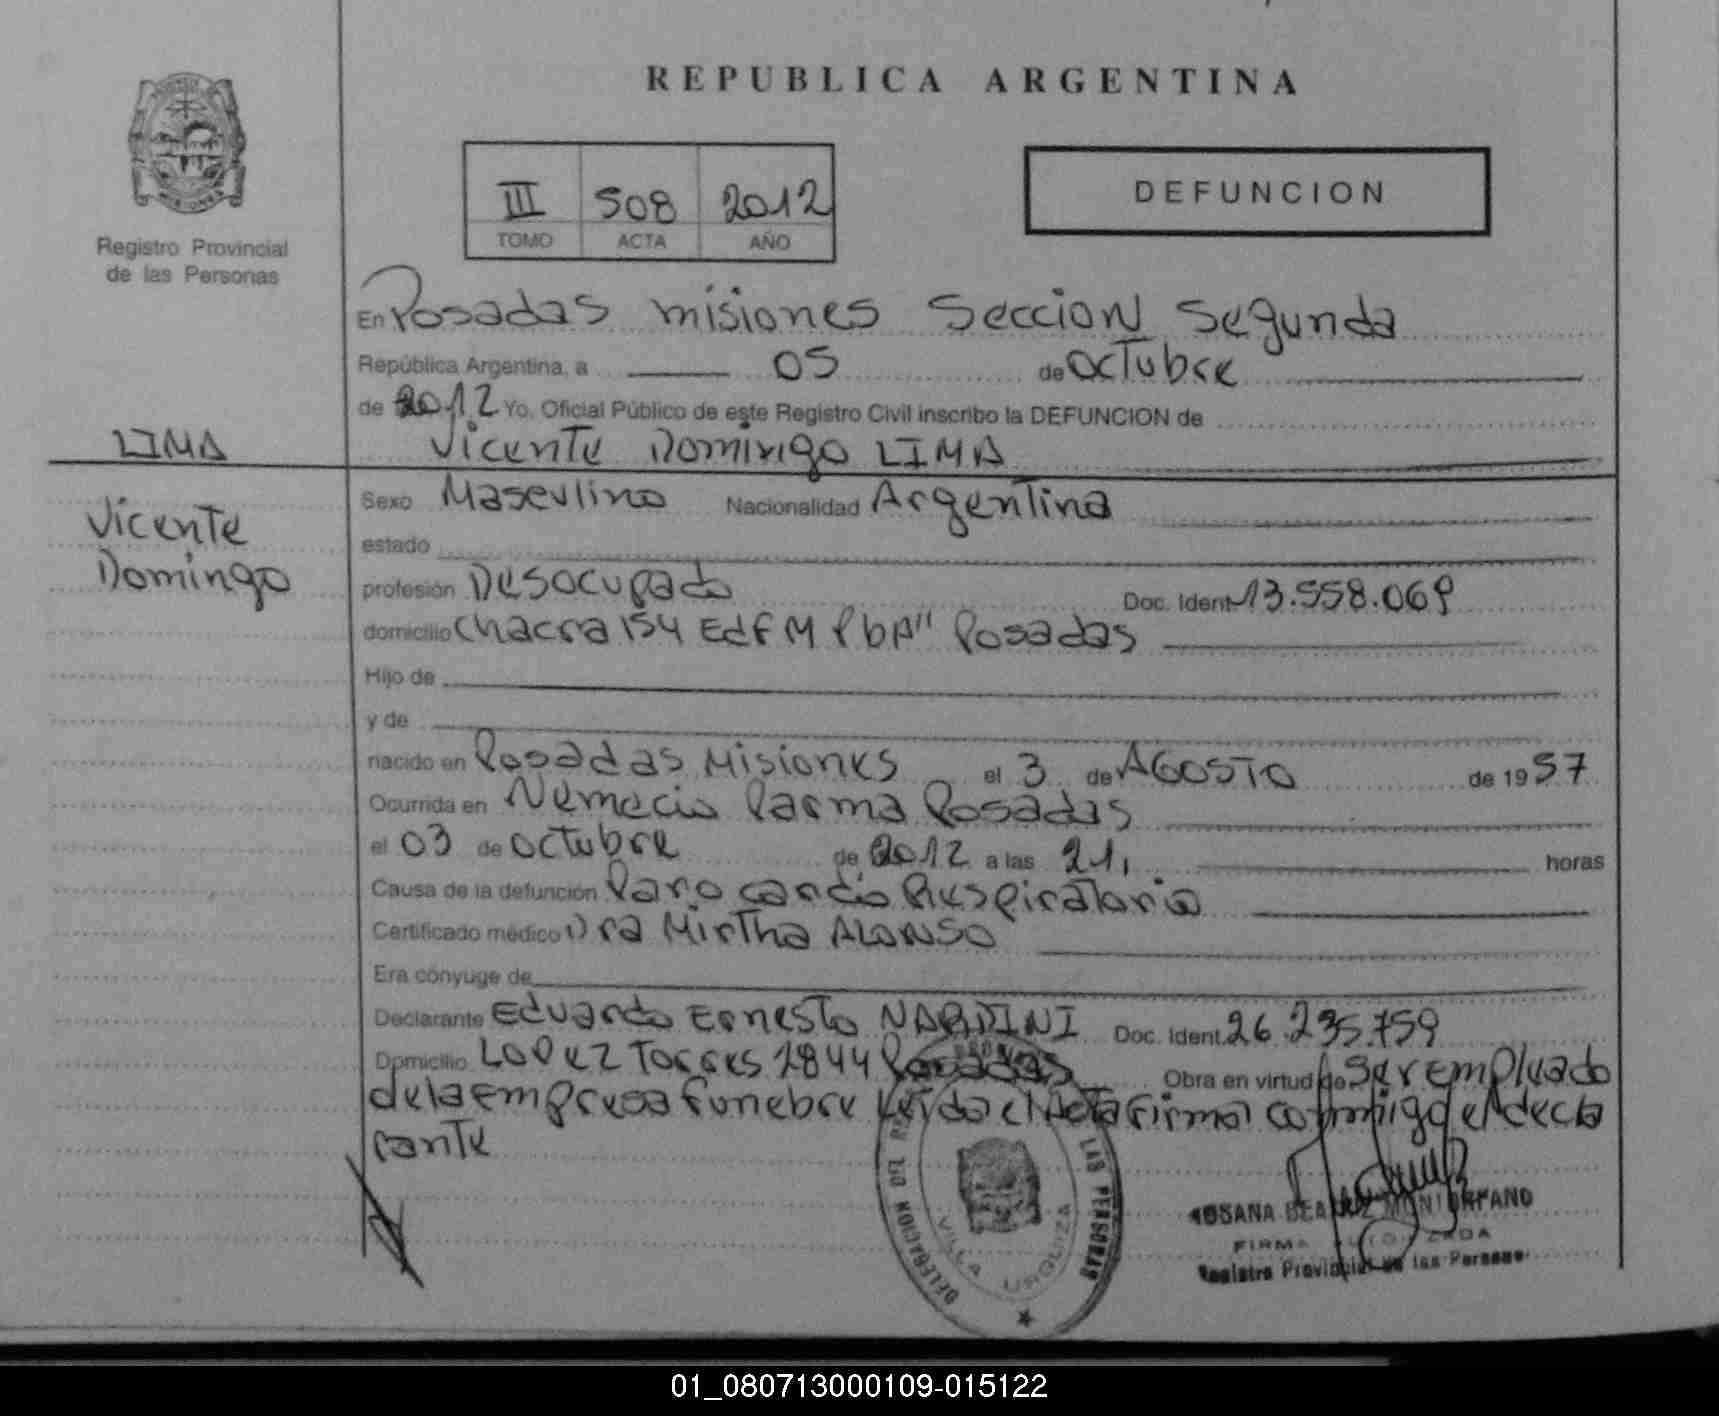 REPUBLICA ARGENTINA
Registro Provincial
de las Personas
III 508 2012
TOMO ACTA AÑO
DEFUNCION
En Posadas misiones Seccion Segunda
República Argentina, a 05 de octubre
de 2012 Yo, Oficial Público de este Registro Civil inscribo la DEFUNCION de
LIMA
Vicente Domingo LIMA
Vicente
Domingo
Sexo Masculino Nacionalidad Argentina
estado
profesión Desocupado Doc. Ident. 13.558.069
domicilio Chacra 154 Edf M Pb A" Posadas
Hijo de
y de
nacido en Posadas Misiones el 3 de AGOSTO de 1957
Ocurrida en Nemecio Parma Posadas
el 03 de octubre de 2012 a las 21, horas
Causa de la defunción Paro cardio Respiratorio
Certificado médico Dra Mirtha ALONSO
Era cónyuge de
Declarante Eduardo Ernesto NARDINI Doc. Ident. 26.235.759
Domicilio LOPEZ Torres 2844 Posadas Obra en virtud de Ser empleado
de la empresa funebre Leido el Acta firma conmigo el decla
rante
DELEGACION DEL LAS PERSONAS
VILLA URQUIZA
MONTORFANO
FIRMA AUTORIZADA
Registro Provincial de las Personas
01_080713000109-015122